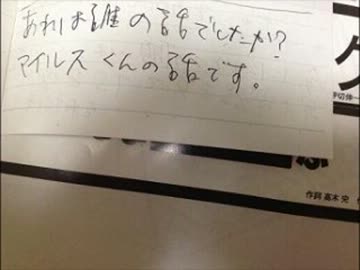 あれは誰の話でしたか?
マイルスくんの話です。
作詞 高木 完